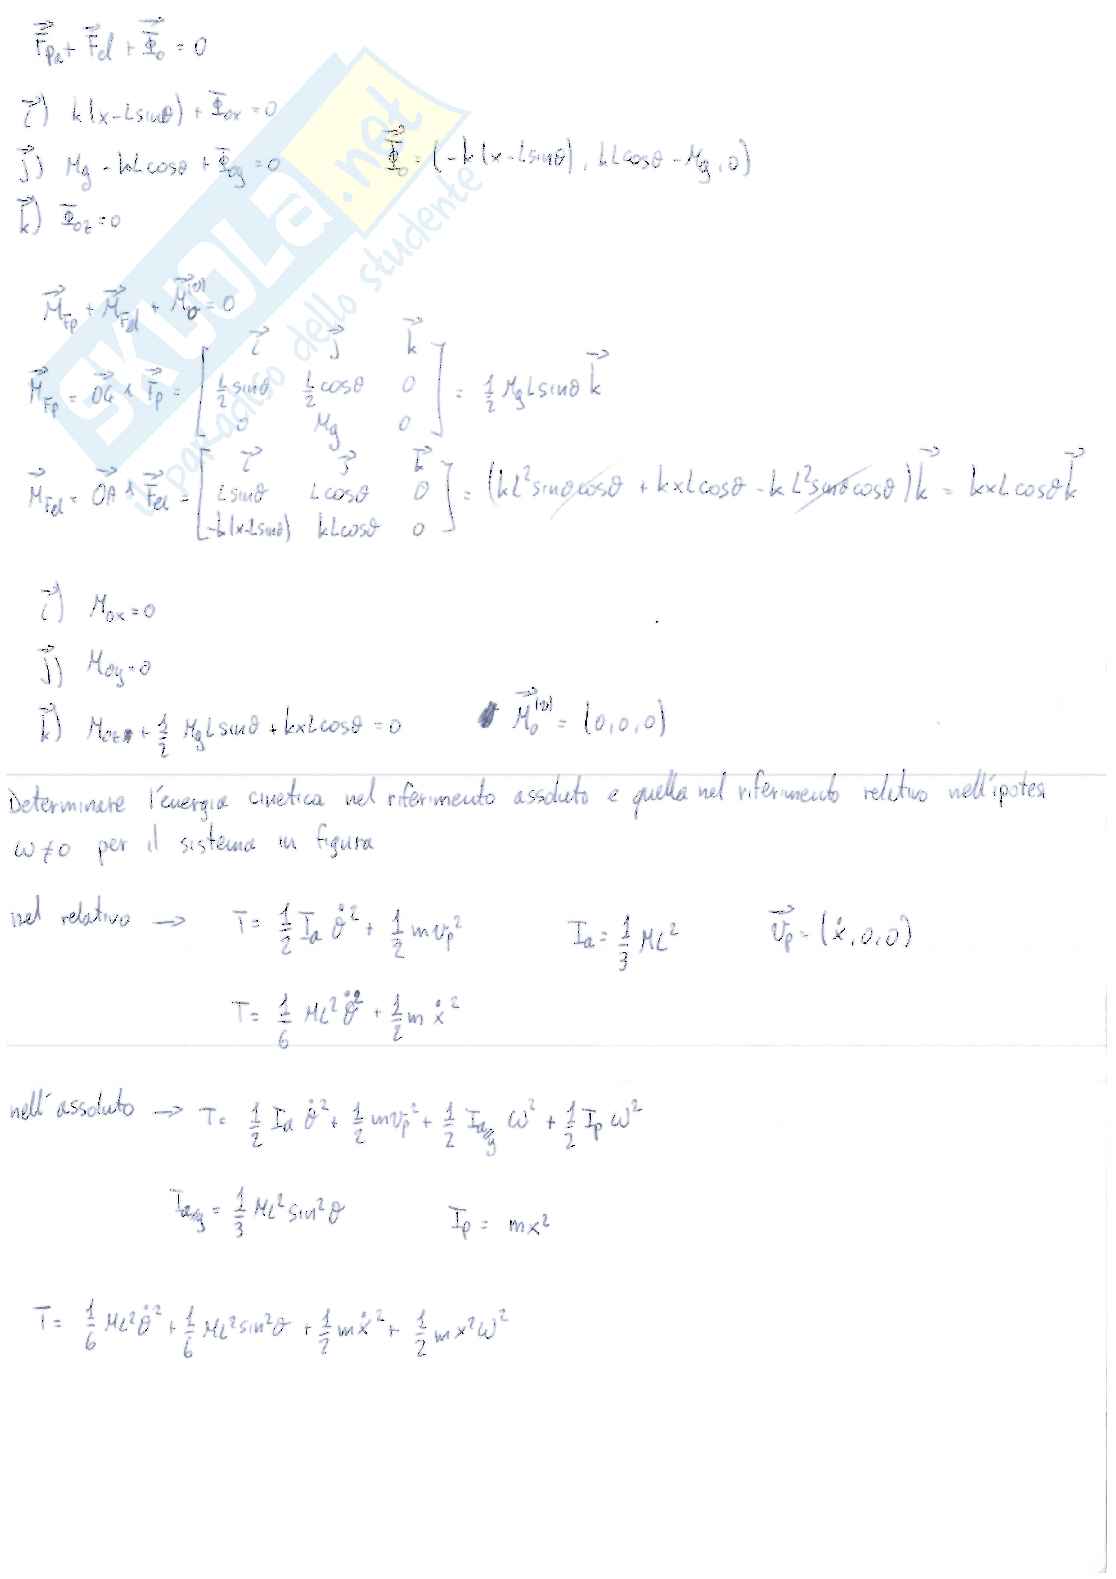 F⃗pa + F⃗el + Φ⃗o = 0
i⃗) k(x-Lsinθ) + Φox = 0
j⃗) Mg - kLcosθ + Φoy = 0 Φ⃗o = (-k(x-Lsinθ), kLcosθ - Mg, 0)
k⃗) Φoz = 0
SKUOLA.net
il paradiso dello studente
M⃗Fp + M⃗Fel + M⃗o⁽ᵛ⁾ = 0
i⃗ j⃗ k⃗
M⃗Fp = OG⃗ ∧ F⃗p = [ L/2 sinθ L/2 cosθ 0 ] = 1/2 MgLsinθ k⃗
0 Mg 0
i⃗ j⃗ k⃗
M⃗Fel = OA⃗ ∧ F⃗el = [ Lsinθ Lcosθ 0 ] = (kL²sinθcosθ + kxLcosθ - kL²sinθcosθ) k⃗ = kxLcosθ k⃗
-k(x-Lsinθ) kLcosθ 0
i⃗) Mox = 0
j⃗) Moy = 0
k⃗) Moz + 1/2 MgLsinθ + kxLcosθ = 0 M⃗o⁽ᵛ⁾ = (0,0,0)
Determinare l'energia cinetica nel riferimento assoluto e quella nel riferimento relativo nell'ipotesi
ω≠0 per il sistema in figura
nel relativo → T = 1/2 Ia θ̇² + 1/2 mvp² Ia = 1/3 ML² v⃗p = (ẋ, 0, 0)
T = 1/6 ML² θ̇² + 1/2 m ẋ²
nell'assoluto → T = 1/2 Ia θ̇² + 1/2 mvp² + 1/2 Iay ω² + 1/2 Ip ω²
Iay = 1/3 ML² sin²θ Ip = mx²
T = 1/6 ML²θ̇² + 1/6 ML²sin²θ + 1/2 mẋ² + 1/2 mx²ω²